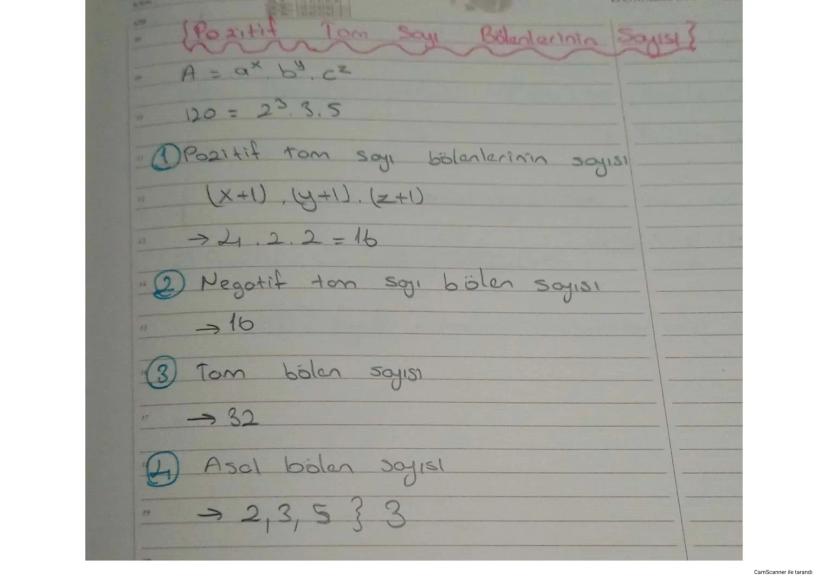 {Pozitif Tam Sayı Bölenlerinin Sayısı}
A = aˣ. bʸ. cᶻ
120 = 2³. 3. 5
① Pozitif tam sayı bölenlerinin sayısı
(x+1). (y+1). (z+1)
→ 4. 2. 2 = 16
② Negatif tam sayı bölen sayısı
→ 16
③ Tam bölen sayısı
→ 32
④ Asal bölen sayısı
→ 2, 3, 5 } 3
CamScanner ile tarandı